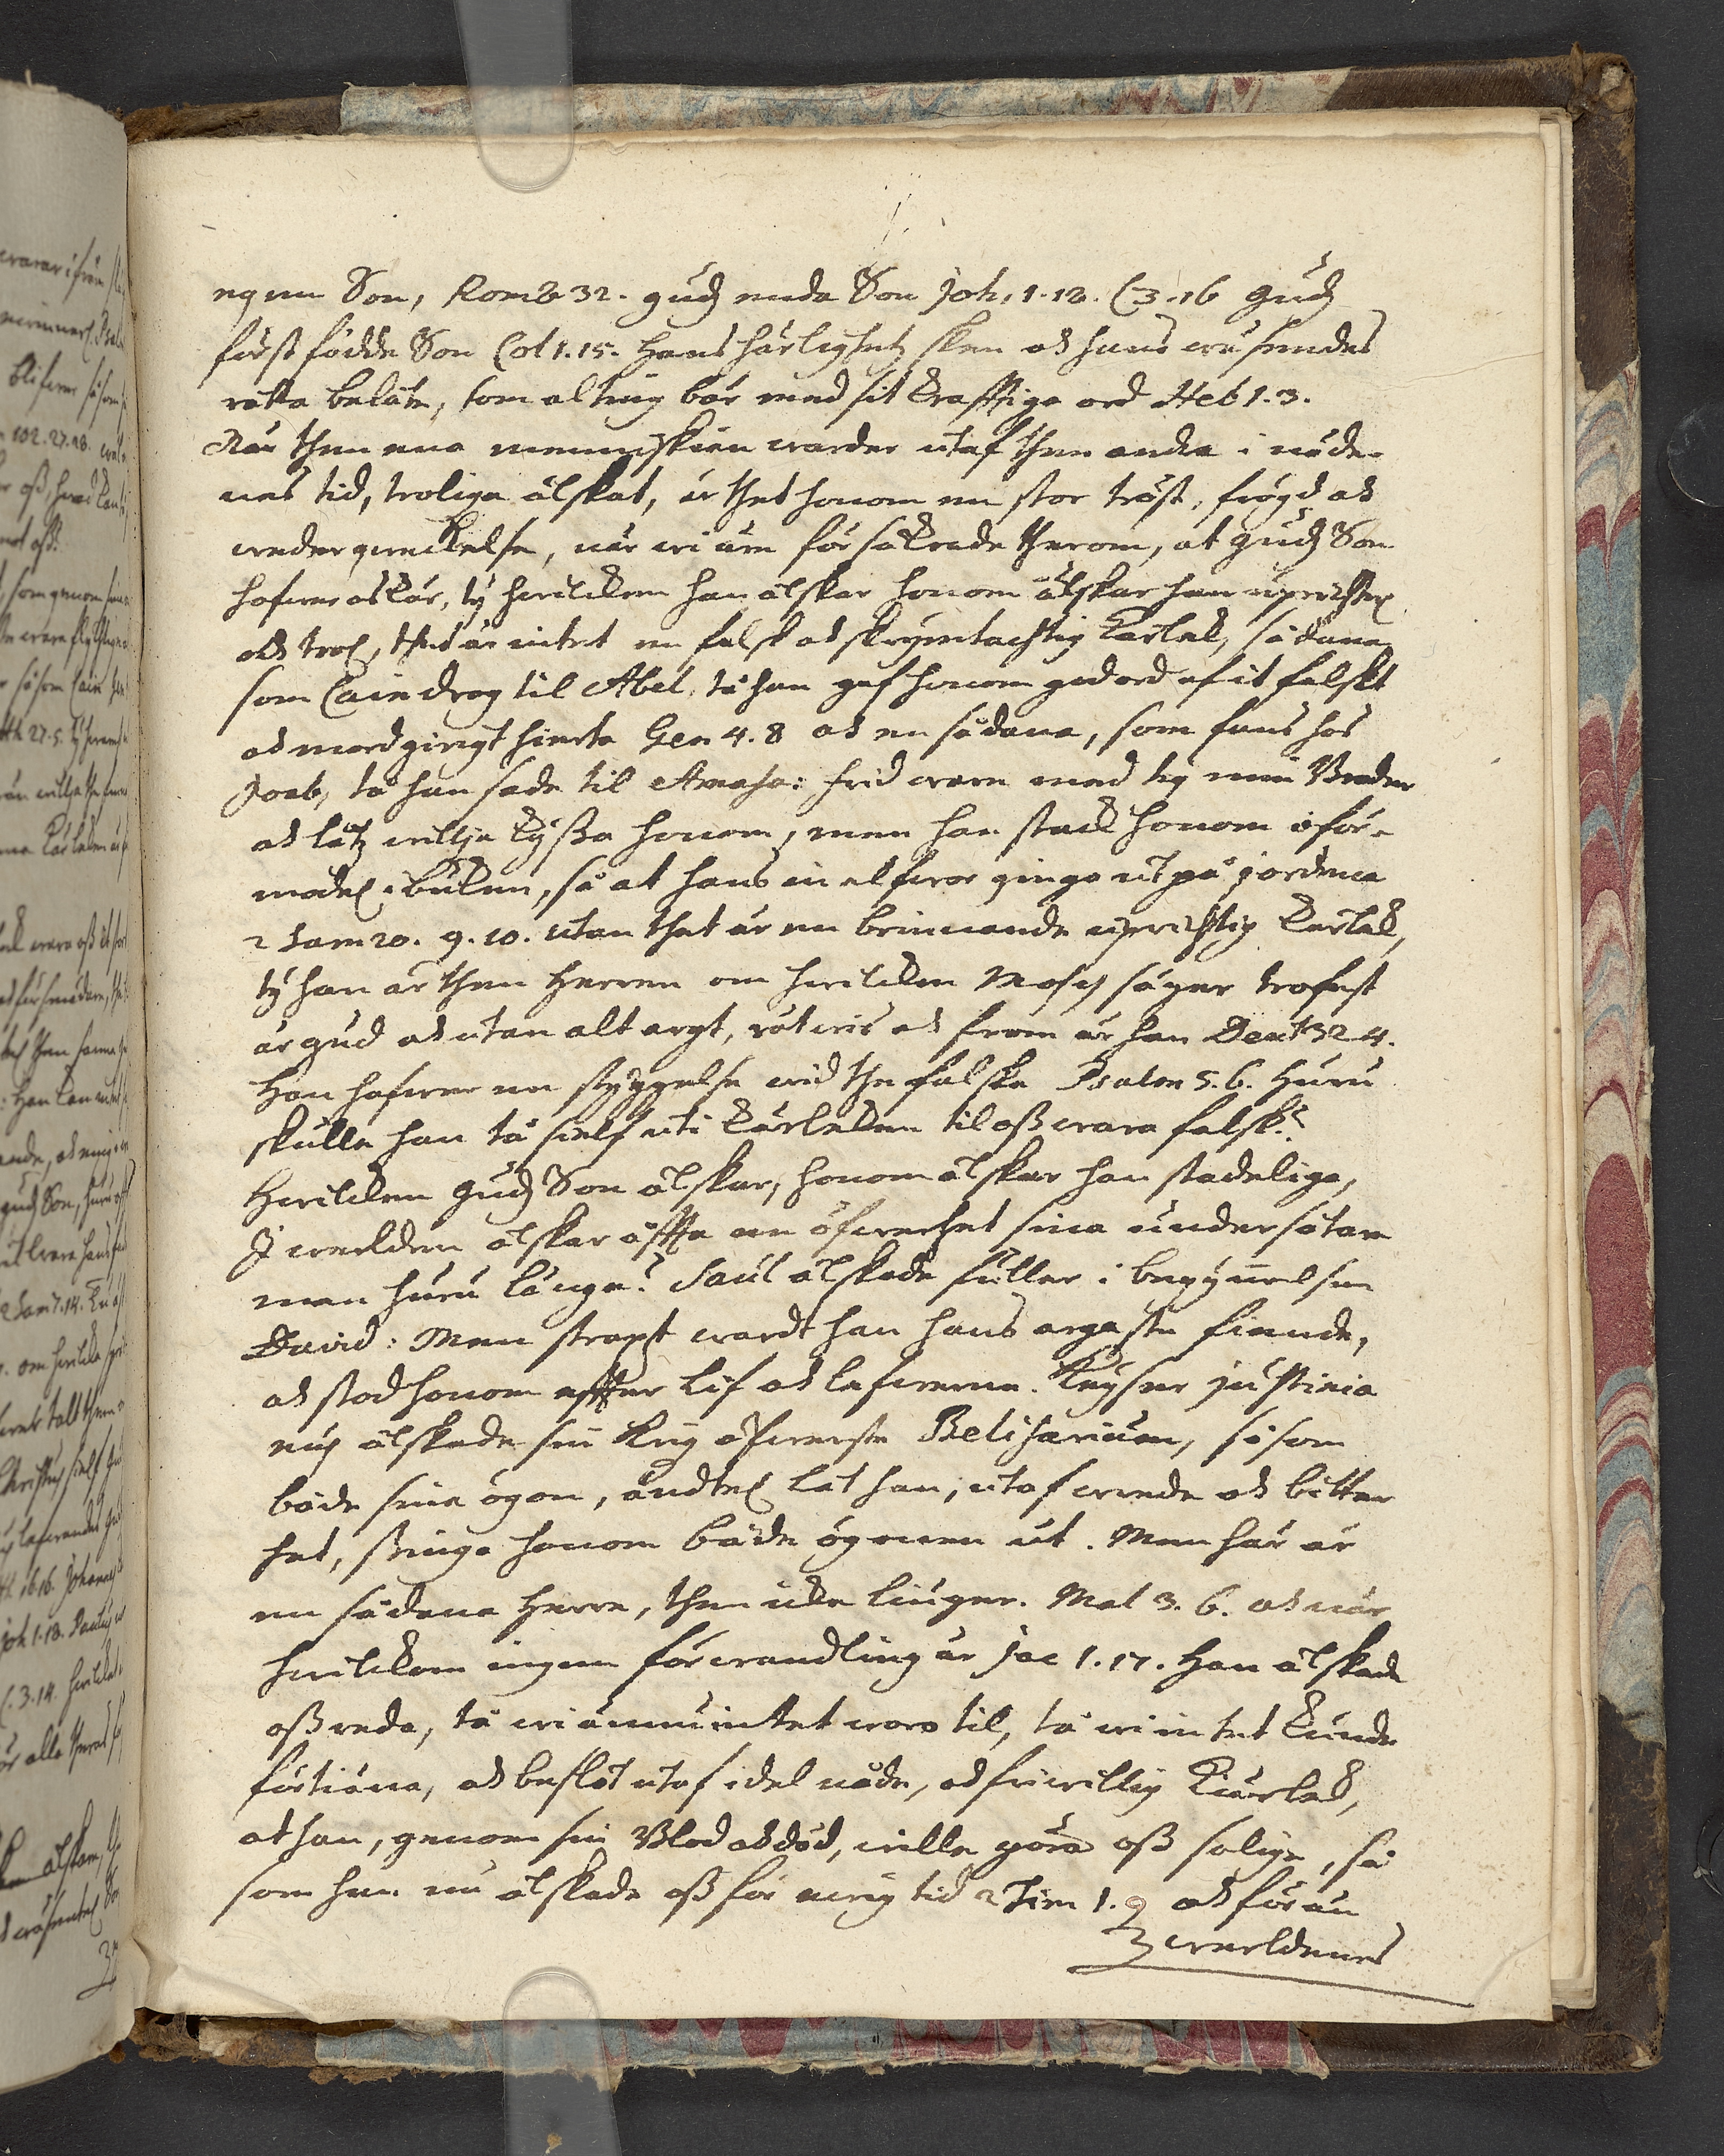 egen Son, Rom 8 32. gudz enda Son Joh. 1. 18. C 3. 16 gudz
först födde Son Col 1. 15. Hans härlighetz sken och hans wäsendes
rätta beläte, som alting bär med sit krafftiga ord Heb 1. 3.
När then ena menniskian warder utaf then andra i nöde-
nes tid, troliga älskat, är thet honom en stor tröst, frögd och
wederqweckelse, när wi äre försäkrade therom, at gudz Son
hafwer oss kär, ty hwilcken han älskar honom älskar han uprichtel.
och trol., thet är intet en falsk och skrymtachtig kärlek, sådana
som Cain drog til Abel, tå han gaf honom god ord af it falskt
och mordgirigt hierta Gen 4. 8 och en sådana, som fans hos
Joab, tå han sade til Amasa: frid ware med tig min Broder
och lätz willja kyssa honom, men han stack honom oför-
model. i buken, så at hans inelfwor ginge ut på jordena
2 Sam 20. 9. 10. utan thet är en brinnande uprichtig kärlek,
ty han är then Herren om hwilcken Moses säger trofast
är gud och utan alt argt, rätwis och from är han Deut 32 4.
Han hafwer en styggelse wid the falska Psalm 5. 6. Huru
skulle han tå sielf uti kärleken til oss wara falsk?
Hwilcken gudz Son älskar, honom älskar han stadeliga,
I werlden älskar offta en öfwerhet sina undersåtare
men huru länge? Saul älskade fuller i begynnelsen
David: Men straxt wardt han hans argaste fiende,
och stod honom effter lif och lefwerne. Keyser Justinia
nus älskade sin Krigz öfwerste Belisarium, så som
både sina ögon, ändtel. lät han, utaf wrede och bitter
hat, stinga honom både ögonen ut. Men här är
en sådana Herre, then icke liuger. Mal 3. 6. och när
hwilckom ingen förwandling är Jac 1. 17. Han älskade
oss reda, tå wi ännu intet woro til, tå wi intet kunde
förtiäna, och beslöt utaf idel nåde, och friwillig kiärlek,
at han, genom sin Blod och död, wille göra oss salige, så
som han nu älskade oss för ewig tid 2 Tim 1. 9 och för än
werldenes